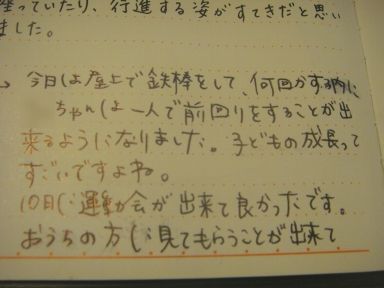 座っていたり、行進する姿がすてきだと思い
ました。
→今日は屋上で鉄棒をして、何回かする内に
ちゃんは一人で前回りをすることが出
来るようになりました。子どもの成長って
すごいですよね。
10日に運動会が出来て良かったです。
おうちの方に見てもらうことが出来て